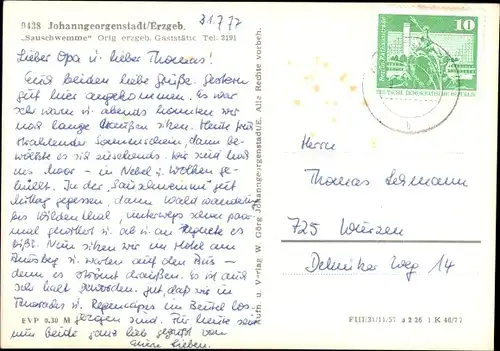 9438 Johanngeorgenstadt/Erzgeb.
"Sauschwemme" Orig. erzgeb. Gaststätte Tel. 2191
31.7.77
Lieber Opa u. lieber Thomas!
Euch beiden liebe Grüße. Gestern
gut hier angekommen. Es war
sehr warm u. abends konnten wir
noch lange draußen sitzen. Heute früh
strahlender Sonnenschein, dann be-
wölkte es sich zusehends. Wir sind nach
in Nebel u. Wolken ge-
hüllt. In der "Sauschwemme" gut
Mittag gegessen, dann Waldwanderung
bis Wildenthal, unterwegs schon paar-
mal gerastet u. ab u. an
Nun sitzen wir im Hotel am
Auersberg u. warten auf den Bus –
denn es strömt draußen. Es ist auch
sehr kalt geworden. Gut, daß wir in
u. Regencapes im Beutel los-
gezogen sind. Für heute seid
nun beide ganz lieb gegrüßt von
Euren Lieben.
EVP 0,20 M
Aufn. u. Verlag W. Görg Johanngeorgenstadt/E. Alle Rechte vorbeh.
10
DEUTSCHE DEMOKRATISCHE REPUBLIK
Herrn
Thomas Lermann
725 Wurzen
Dehnitzer Weg 14